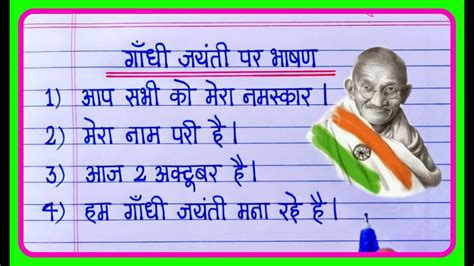 गाँधी जयंती पर भाषण
1) आप सभी को मेरा नमस्कार ।
2) मेरा नाम परी है ।
3) आज 2 अक्टूबर है ।
4) हम गाँधी जयंती मना रहे है ।